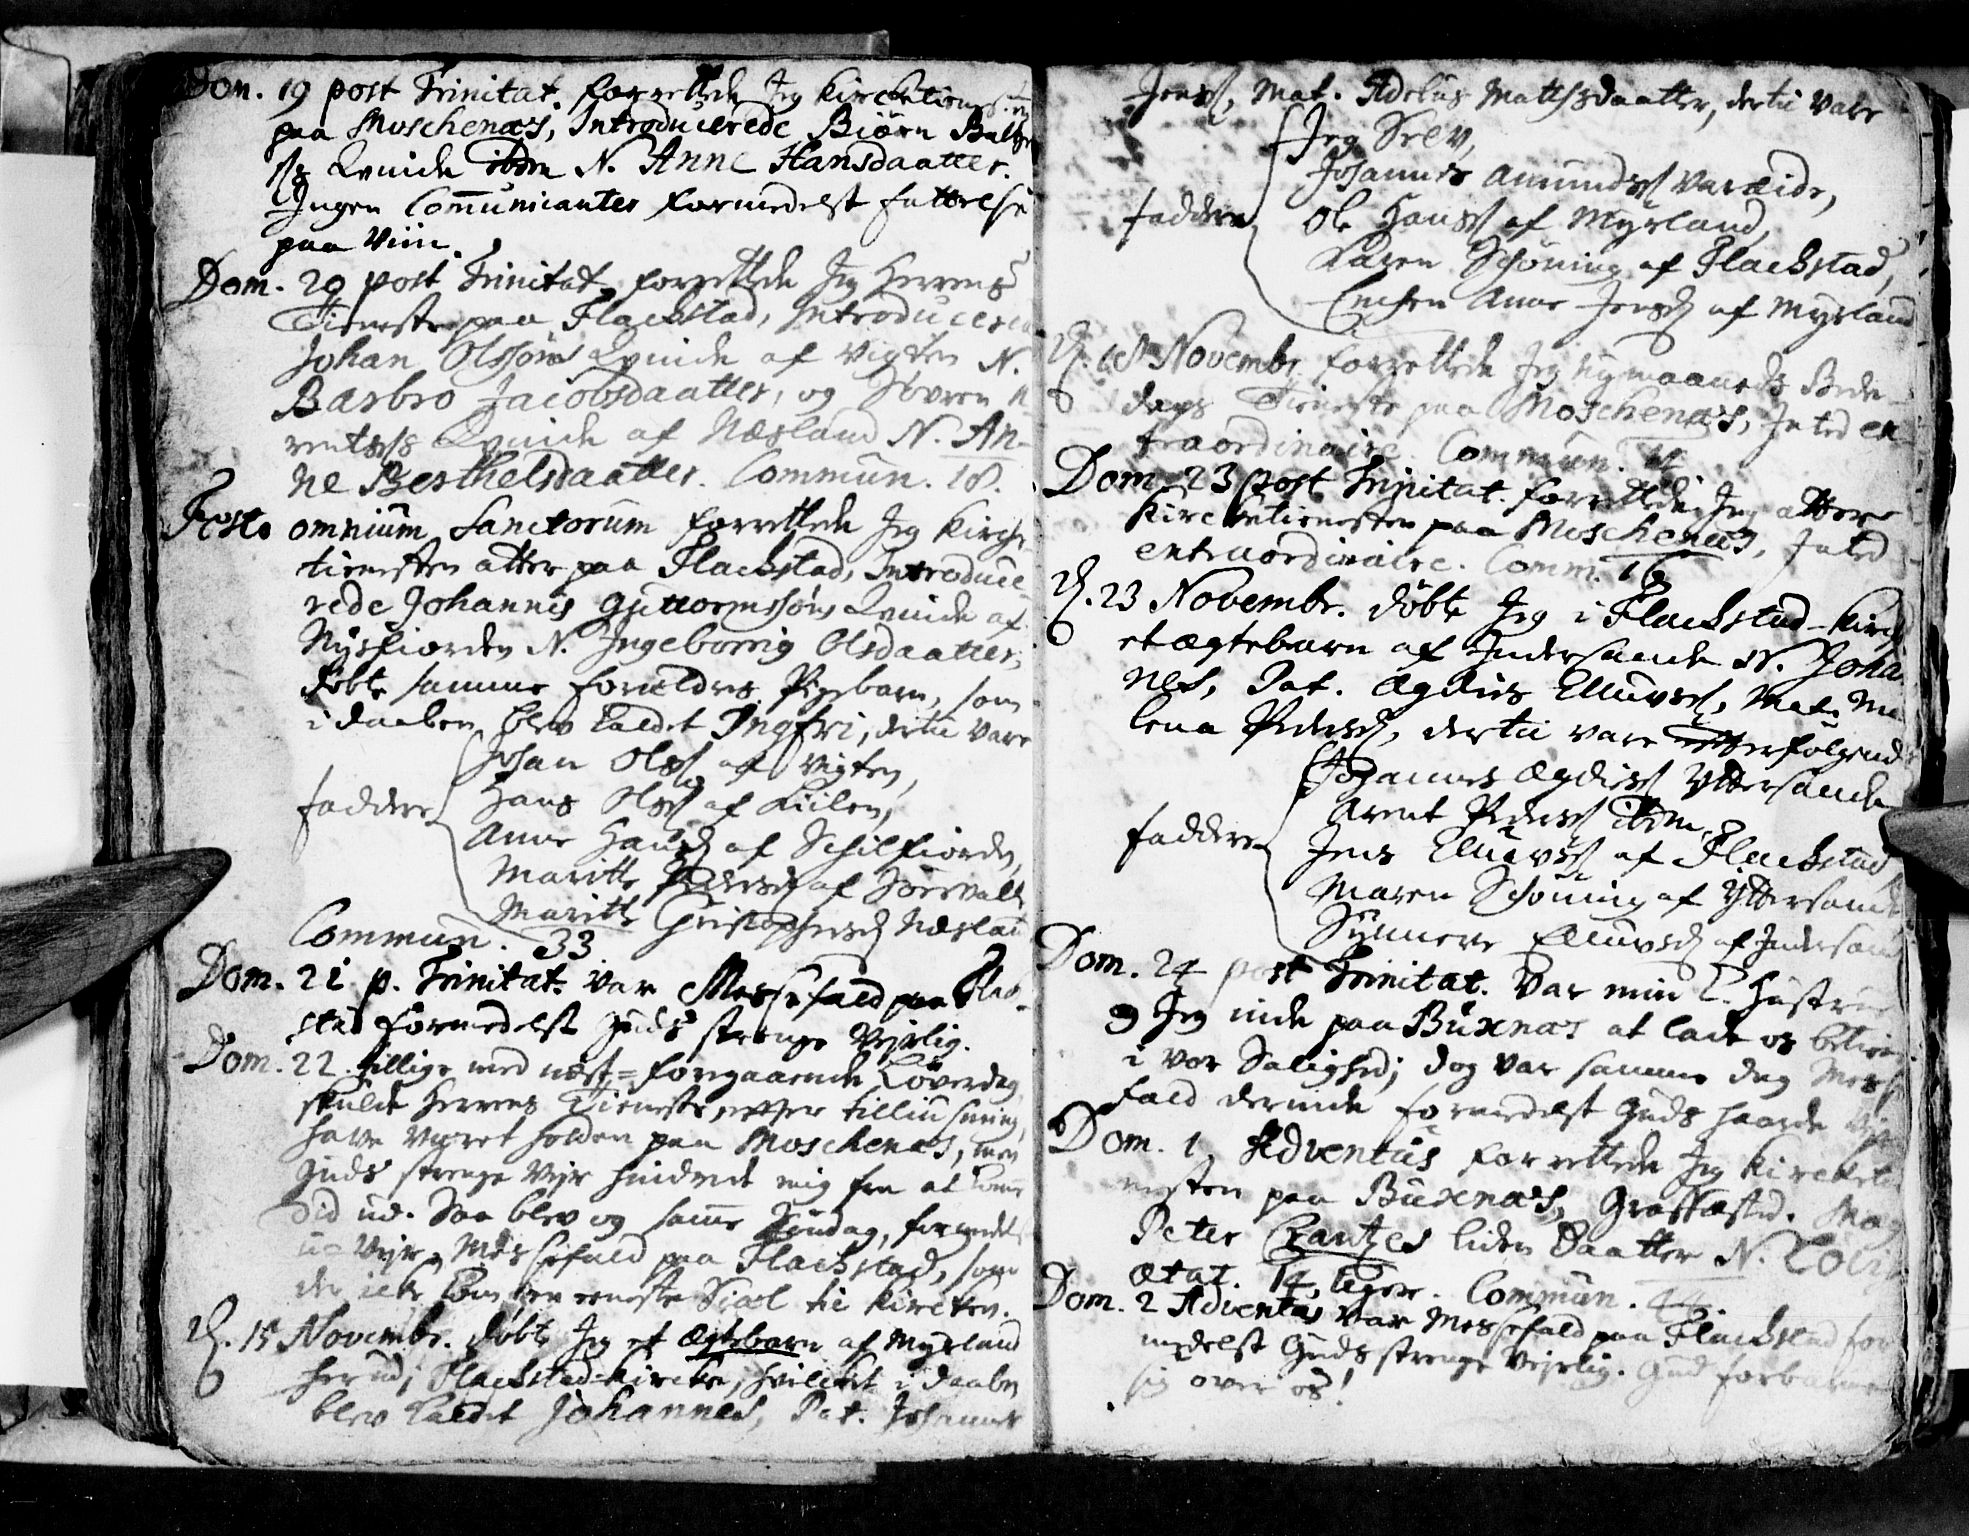 Dom. 19 post Trinitat. forrettede Jeg Kircketienesten
paa Moschenæs, Introducerede Biørn
Qvinde ibm N. Anne Hansdaatter.
Ingen Com̄unicantes formedelst fattelse
paa Viin.
Dom. 20 post Trinitat. forrettede Jeg Herrens
Tieneste paa Flackstad, Introducerede
Johan Olssøns Qvinde af Vigten N.
Barbro Jacobsdaatter, og Søvren
Qvinde af Næsland N. An-
ne Berthelsdaatter. Commun. 18.
Festo omnium Sanctorum forrettede Jeg Kircke-
tienesten atter paa Flackstad, Introduce-
rede Johannis Guttormssøns Qvinde af
Nysfiorden N. Ingeborrig Olsdaatter,
døbte samme Forældres Pigebarn, som
i daaben blev kaldet Ingfri, dertil vare
Johan Olss. af Vigten,
Faddere Hans Olss. af Kiilen,
Anne Hansd. af Schilfiorden,
Maritte Pedersd. af
Maritte Christophersd. Næsland
Commun. 33
Dom. 21 p. Trinitat. var Messefald paa Flac-
stad formedelst Guds strenge Vejrlig.
Dom. 22. tillige med næst-foregaaende Løverdag
skulde Herrens Tieneste, efter tilliusning,
have været holden paa Moschenæs, men
Guds strenge Vejr hindrede mig fra at kom̄e
did ud. Saa blev og sam̄e Søndag, formedelst
Vejr, Messefald paa Flackstad, som
der icke kom een eeneste Siæl til Kircken.
d. 15 Novembr. døbte Jeg et Ægtebarn af Myrland
her ud i Flackstad-Kircke, hvilcket i daaben
blev kaldet Johannes, Pat. Johannes
Jenss., Mat. Adelus Mattsdaatter, dertil vare
Jeg Selv,
Johannes Amundss. Vareide,
Faddere Ole Hanss. af Myrland,
Karen Schøning af Flackstad,
Encken Anne Jensd. af Myrland
d. 18 Novembr. forrettede Jeg Nymaaneds Bede-
dags Tieneste paa Moschenæs, Inted ex-
traordinaire. Commun.
Dom. 23 post Trinitat. forrettede Jeg atter
Kircketienesten paa Moschenæs, Inted
extraordinaire. Comm. 16
d. 23 Novembr. døbte Jeg i Flackstad-Kirche
et ægtebarn af Indersande N. Johan-
nes, Pat. Ægidius Elluvss., Mat. Ma-
lena Pedersd., dertil vare efterfølgende
Johannes Ægidiss. Yttersande
Arent Pederss. ibm.
Faddere Jens Elluvss. af Flackstad
Maren Schøning af Yttersande
Synnere Elluvsd. af Indersand
Dom. 24 post Trinitat. Var min K. Hustrue
og Jeg inde paa Buxnæs at lade os betiene
i vor Salighed; dog var samme dag Messe-
fald derinde formedelst Guds haarde Vejr
Dom. 1. Adventus forrettede Jeg Kircketie-
nesten paa Buxnæs, Græffæsted. Mag.
Peter Crantzes liden Daatter N.
ætat. 14 uger. Commun. 44.
Dom. 2 Adventus var Messefald paa Flackstad for-
medelst Guds strenge Vejrlig. Gud forbarme
sig over os!